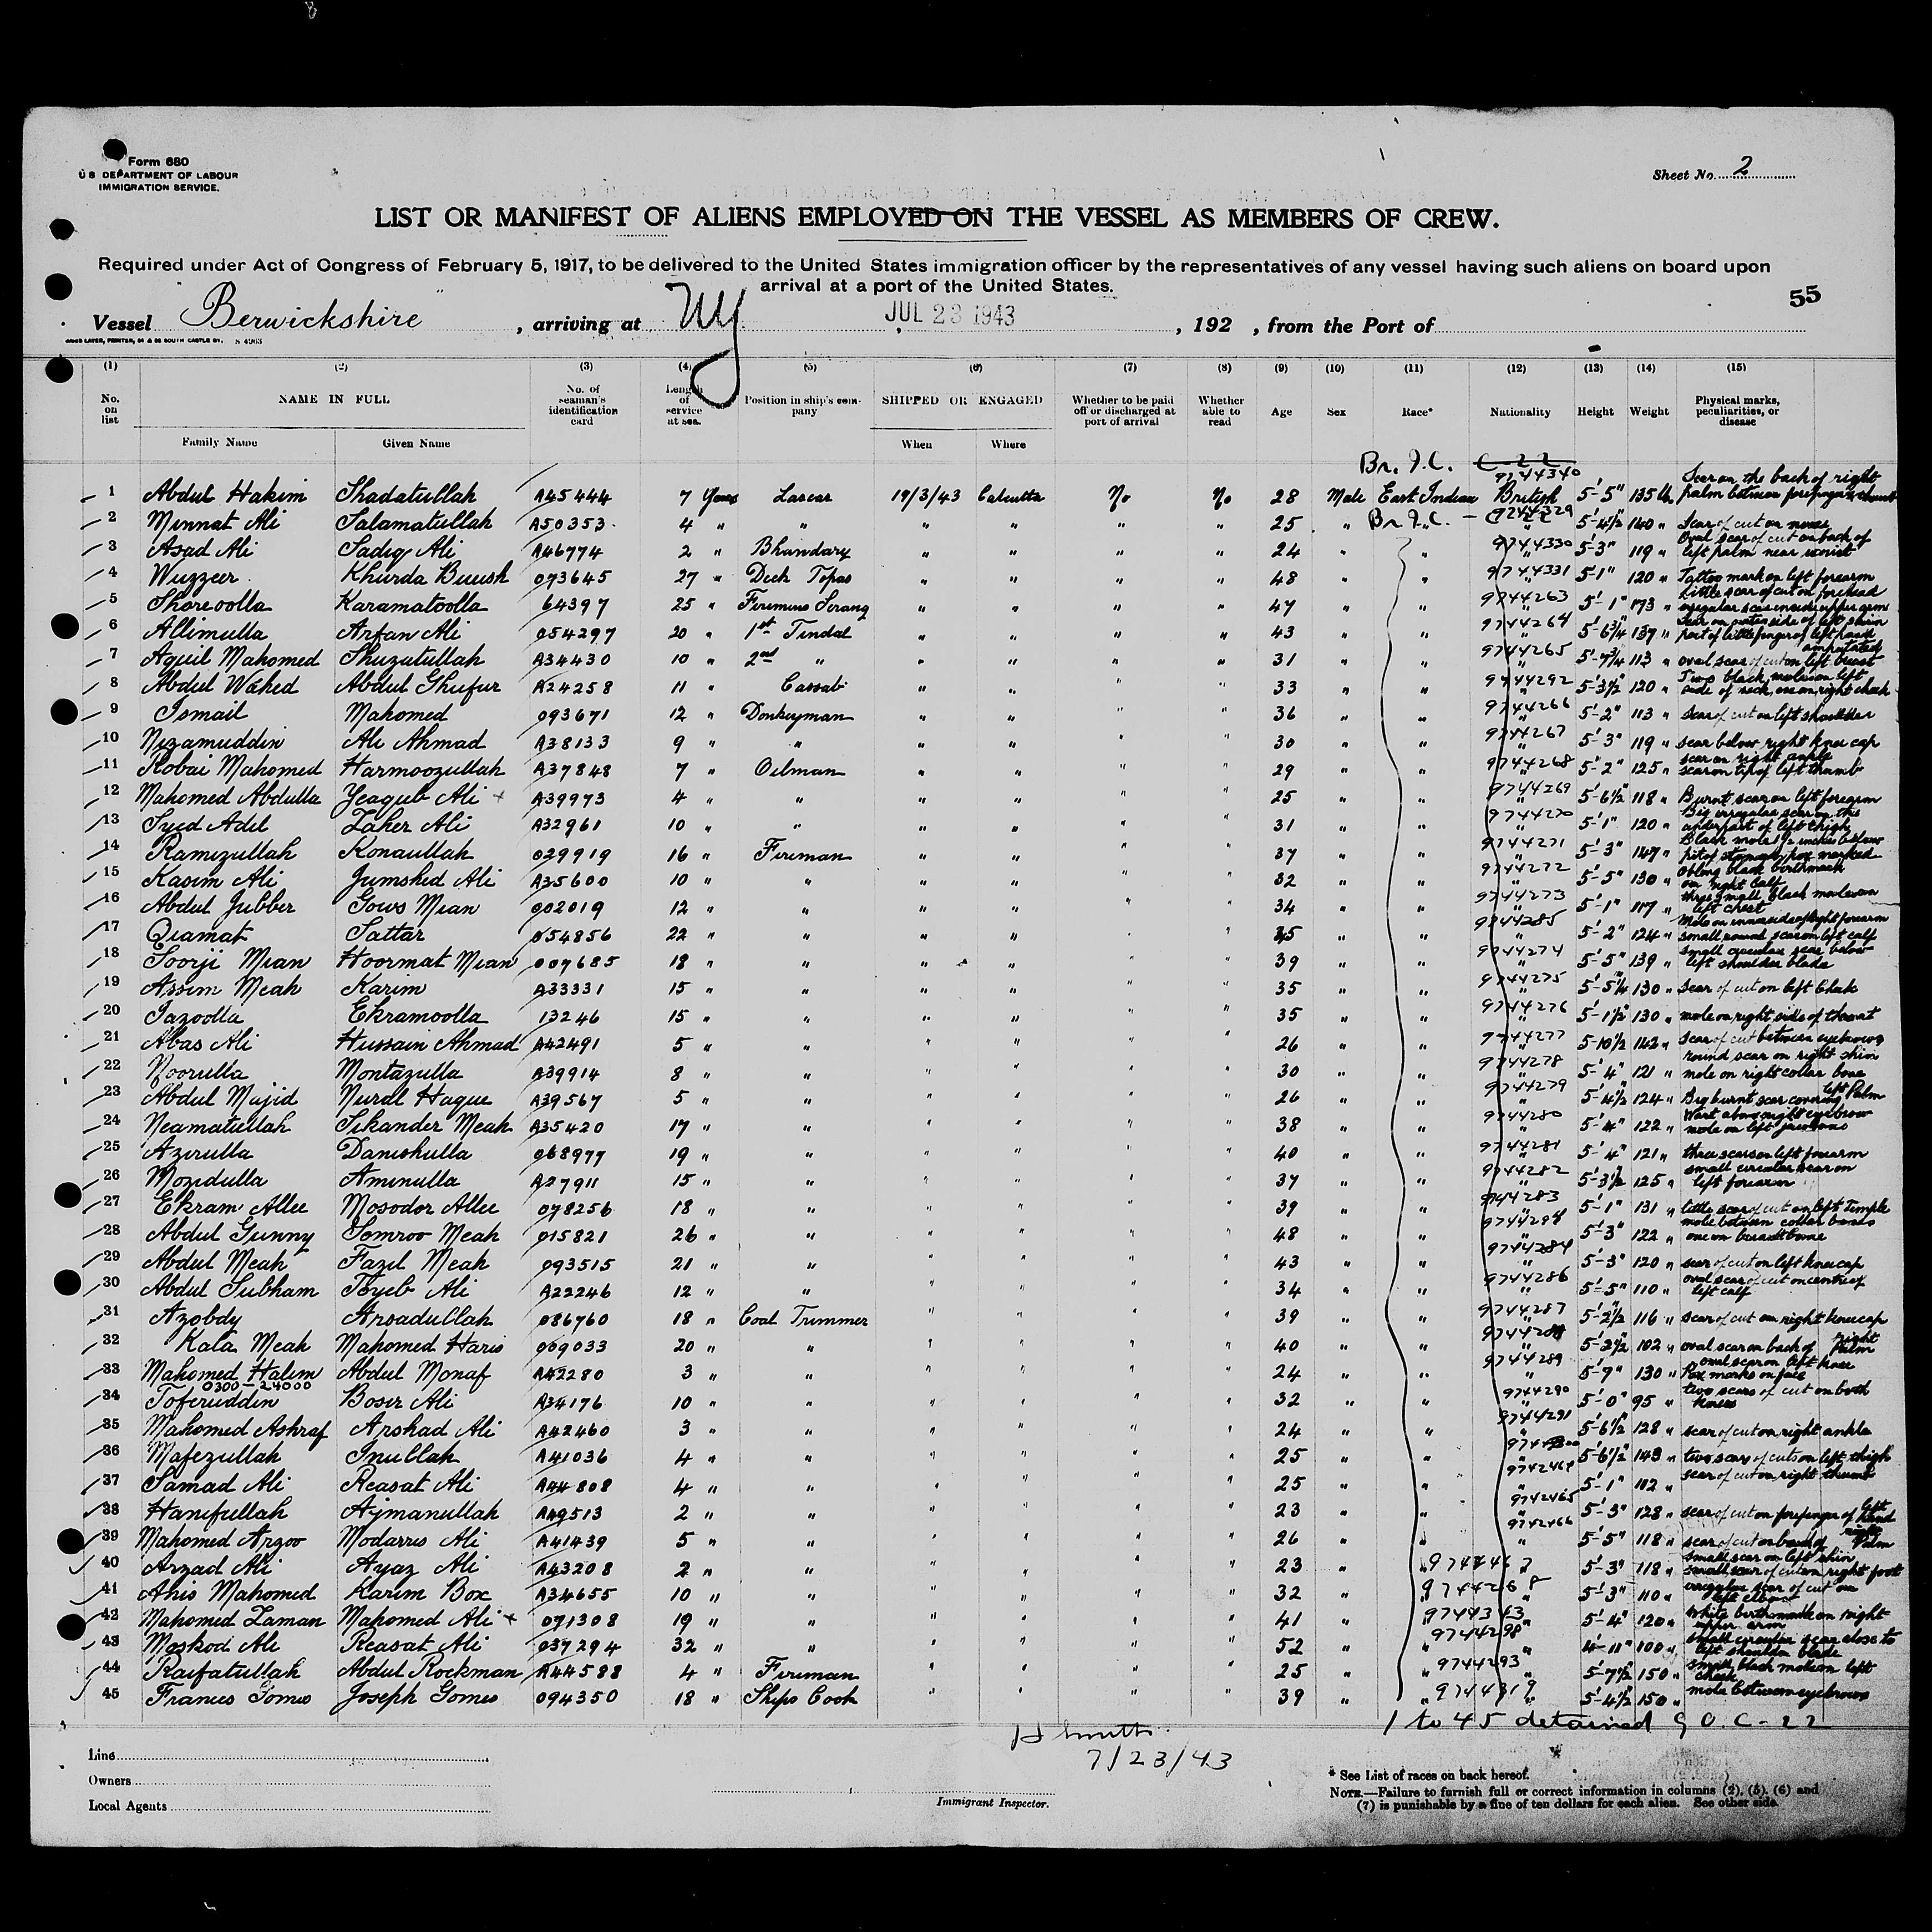 8
Form 680
U S DEPARTMENT OF LABOUR
IMMIGRATION SERVICE.
Sheet No. 2
LIST OR MANIFEST OF ALIENS EMPLOYED ON THE VESSEL AS MEMBERS OF CREW.
Required under Act of Congress of February 5, 1917, to be delivered to the United States immigration officer by the representatives of any vessel having such aliens on board upon
arrival at a port of the United States.
55
Vessel Berwickshire , arriving at NY JUL 23 1943 , 192 , from the Port of
(1) (2) (3) (4) (5) (6) (7) (8) (9) (10) (11) (12) (13) (14) (15)
No. on list NAME IN FULL No. of seaman's identification card Length of service at sea. Position in ship's company SHIPPED OR ENGAGED Whether to be paid off or discharged at port of arrival Whether able to read Age Sex Race* Nationality Height Weight Physical marks, peculiarities, or disease
Family Name Given Name When Where
Br. I.C. C-22
1 Abdul Hakim Shadatullah A45444 7 Years Lascar 19/3/43 Calcutta No No 28 Male East Indian 9744340 British 5'-5" 135 lb Scar on the back of right palm between forefinger & thumb
2 Minnat Ali Salamatullah A50353 4 " " " " " " 25 " Br I.C. - C-22 9744329 5'-4½ 140 " Scar of cut on nose
3 Asad Ali Sadiq Ali A46774 2 " Bhandary " " " " 24 " " 9744330 5'-3" 119 " Oval scar of cut on back of left palm near wrist
4 Wuzzeer Khurda Buush 073645 27 " Deck Topas " " " " 48 " " 9744331 5'-1" 120 " Tattoo mark on left forearm
5 Shoreoolla Karamatoolla 64397 25 " Firemins Serang " " " " 47 " " 9744263 5'-1" 173 " Little scar of cut on forehead irregular scar inside upper arm
6 Allimulla Arfan Ali 054297 20 " 1st Tindal " " " " 43 " " 9744264 5'-6¾ 137 " Scar on outer side of left shin part of little finger of left hand amputated
7 Aquil Mahomed Shuzatullah A34430 10 " 2nd " " " " " 31 " " 9744265 5'-7¾ 113 " oval scar of cut on left breast
8 Abdul Wahed Abdul Ghufur A24258 11 " Cassab " " " " 33 " " 9744292 5'-3½ 120 " Two black moles on left side of neck, one on right cheek
9 Ismail Mahomed 093671 12 " Donkeyman " " " " 36 " " 9744266 5'-2" 113 " scar of cut on left shoulder
10 Nizamuddin Ali Ahmad A38133 9 " " " " " " 30 " " 9744267 5'-3" 119 " scar below right knee cap
11 Robai Mahomed Harmoozullah A37848 7 " Oilman " " " " 29 " " 9744268 5'-2" 125 " scar on right ankle scar on tip of left thumb
12 Mahomed Abdulla Yeaqub Ali + A39973 4 " " " " " " 25 " " 9744269 5'-6½" 118 " Burnt scar on left forearm
13 Syed Adel Zaher Ali A32961 10 " " " " " " 31 " " 9744270 5'-1" 120 " Big irregular scar on the underpart of left thigh
14 Ramizullah Konaullah 029919 16 " Fireman " " " " 37 " " 9744271 5'-3" 147 " Black mole ½ inches below pit of stomach, pox marked
15 Kasim Ali Jumshed Ali A35600 10 " " " " " " 32 " " 9744272 5'-5" 130 " Oblong black birthmark on right calf
16 Abdul Jubber Gows Mian 002019 12 " " " " " " 34 " " 9744273 5'-1" 117 " three small black moles on left chest
17 Qiamat Sattar 054856 22 " " " " " " 45 " " 9744285 5'-2" 124 " Mole on inner side of right forearm small round scar on left calf
18 Soorji Mian Hoormat Mian 007685 18 " " " " " " 39 " " 9744274 5'-5" 139 " small circular scar below left shoulder blade
19 Assim Meah Karim A33331 15 " " " " " " 35 " " 9744275 5'-5¼ 130 " Scar of cut on left Cheek
20 Sazoolla Ekramoolla 13246 15 " " " " " " 35 " " 9744276 5'-1½" 130 " mole on right side of throat
21 Abas Ali Hussain Ahmad A42491 5 " " " " " " 26 " " 9744277 5'-10½ 142 " scar of cut between eyebrows
22 Noorulla Montazulla A39914 8 " " " " " " 30 " " 9744278 5'-4" 121 " round scar on right shin mole on right collar bone
23 Abdul Majid Nurdl Haque A39567 5 " " " " " " 26 " " 9744279 5'-4½ 124 " Big burnt scar covering left Palm
24 Neamatullah Sikander Meah A35420 17 " " " " " " 38 " " 9744280 5'-4" 122 " Wart above right eyebrow mole on left jawbone
25 Azirulla Danishulla 068977 19 " " " " " " 40 " " 9744281 5'-4" 121 " three scars on left forearm
26 Mozidulla Aminulla A27911 15 " " " " " " 37 " " 9744282 5'-3½ 125 " small circular scar on left forearm
27 Ekram Allee Mosodor Allee 078256 18 " " " " " " 39 " " 9744283 5'-1" 131 " little scar of cut on left Temple
28 Abdul Gunny Somroo Meah 015821 26 " " " " " " 48 " " 9744294 5'-3" 122 " mole between collar bones one on breastbone
29 Abdul Meah Fazil Meah 093515 21 " " " " " " 43 " " 9744284 5'-3" 120 " scar of cut on left knee cap
30 Abdul Subham Toyeb Ali A22246 12 " " " " " " 34 " " 9744286 5'-5" 110 " oval scar of cut on centre of left calf
31 Azobdy Arsadullah 086760 18 " Coal Trimmer " " " " 39 " " 9744287 5'-2½ 116 " scar of cut on right knee cap
32 Kala Meah Mahomed Haris 009033 20 " " " " " " 40 " " 5'-2½ 102 " oval scar on back of right Palm
33 Mahomed Halim Abdul Monaf A42280 3 " " " " " " 24 " " 9744289 5'-7" 130 " oval scar on left knee Pox marks on face
0300 - 24000
34 Toferuddin Bosir Ali A34176 10 " " " " " " 32 " " 9744290 5'-0" 95 " two scars of cut on both knees
35 Mahomed Ashraf Arshad Ali A42460 3 " " " " " " 24 " " 9744291 5'-6½" 128 " scar of cut on right ankle
36 Mafezullah Inullah A41036 4 " " " " " " 25 " " 5'-6½" 143 " two scars of cuts on left thigh
37 Samad Ali Reasat Ali A44808 4 " " " " " " 25 " " 9742464 5'-1" 112 " scar of cut on right thumb
38 Hanifullah Ajmanullah A49513 2 " " " " " " 23 " " 9742465 5'-3" 128 " scar of cut on forefinger of left hand
39 Mahomed Arzoo Modarris Ali A41439 5 " " " " " " 26 " " 9742466 5'-5" 118 " scar of cut on back of right Palm
40 Arzad Ali Ayaz Ali A43208 2 " " " " " " 23 " " 5'-3" 118 " small scar on left shin small scar of cut on right foot
41 Anis Mahomed Karim Box A34655 10 " " " " " " 32 " " 5'-3" 110 " irregular scar of cut on left elbow
42 Mahomed Zaman Mahomed Ali + 071308 19 " " " " " " 41 " " 5'-4" 120 " White birthmark on right upper arm
43 Moskod Ali Reasat Ali 037294 32 " " " " " " 52 " " 9744298 4'-11" 100 " small circular scar close to left shoulder blade
44 Raifatullah Abdul Rockman A44588 4 " Fireman " " " " 25 " " 9744293 5'-7½ 150 " small black mole on left cheek
45 Francis Gomes Joseph Gomes 094350 18 " Ships Cook " " " " 39 " " 9744319 5'-4½ 150 " mole between eyebrows
1 to 45 detained 9 O. C-22
H Smith
7/23/43
Line
Owners
Local Agents
Immigrant Inspector.
* See List of races on back hereof.
NOTE.—Failure to furnish full or correct information in columns (2), (5), (6) and
(7) is punishable by a fine of ten dollars for each alien. See other side.